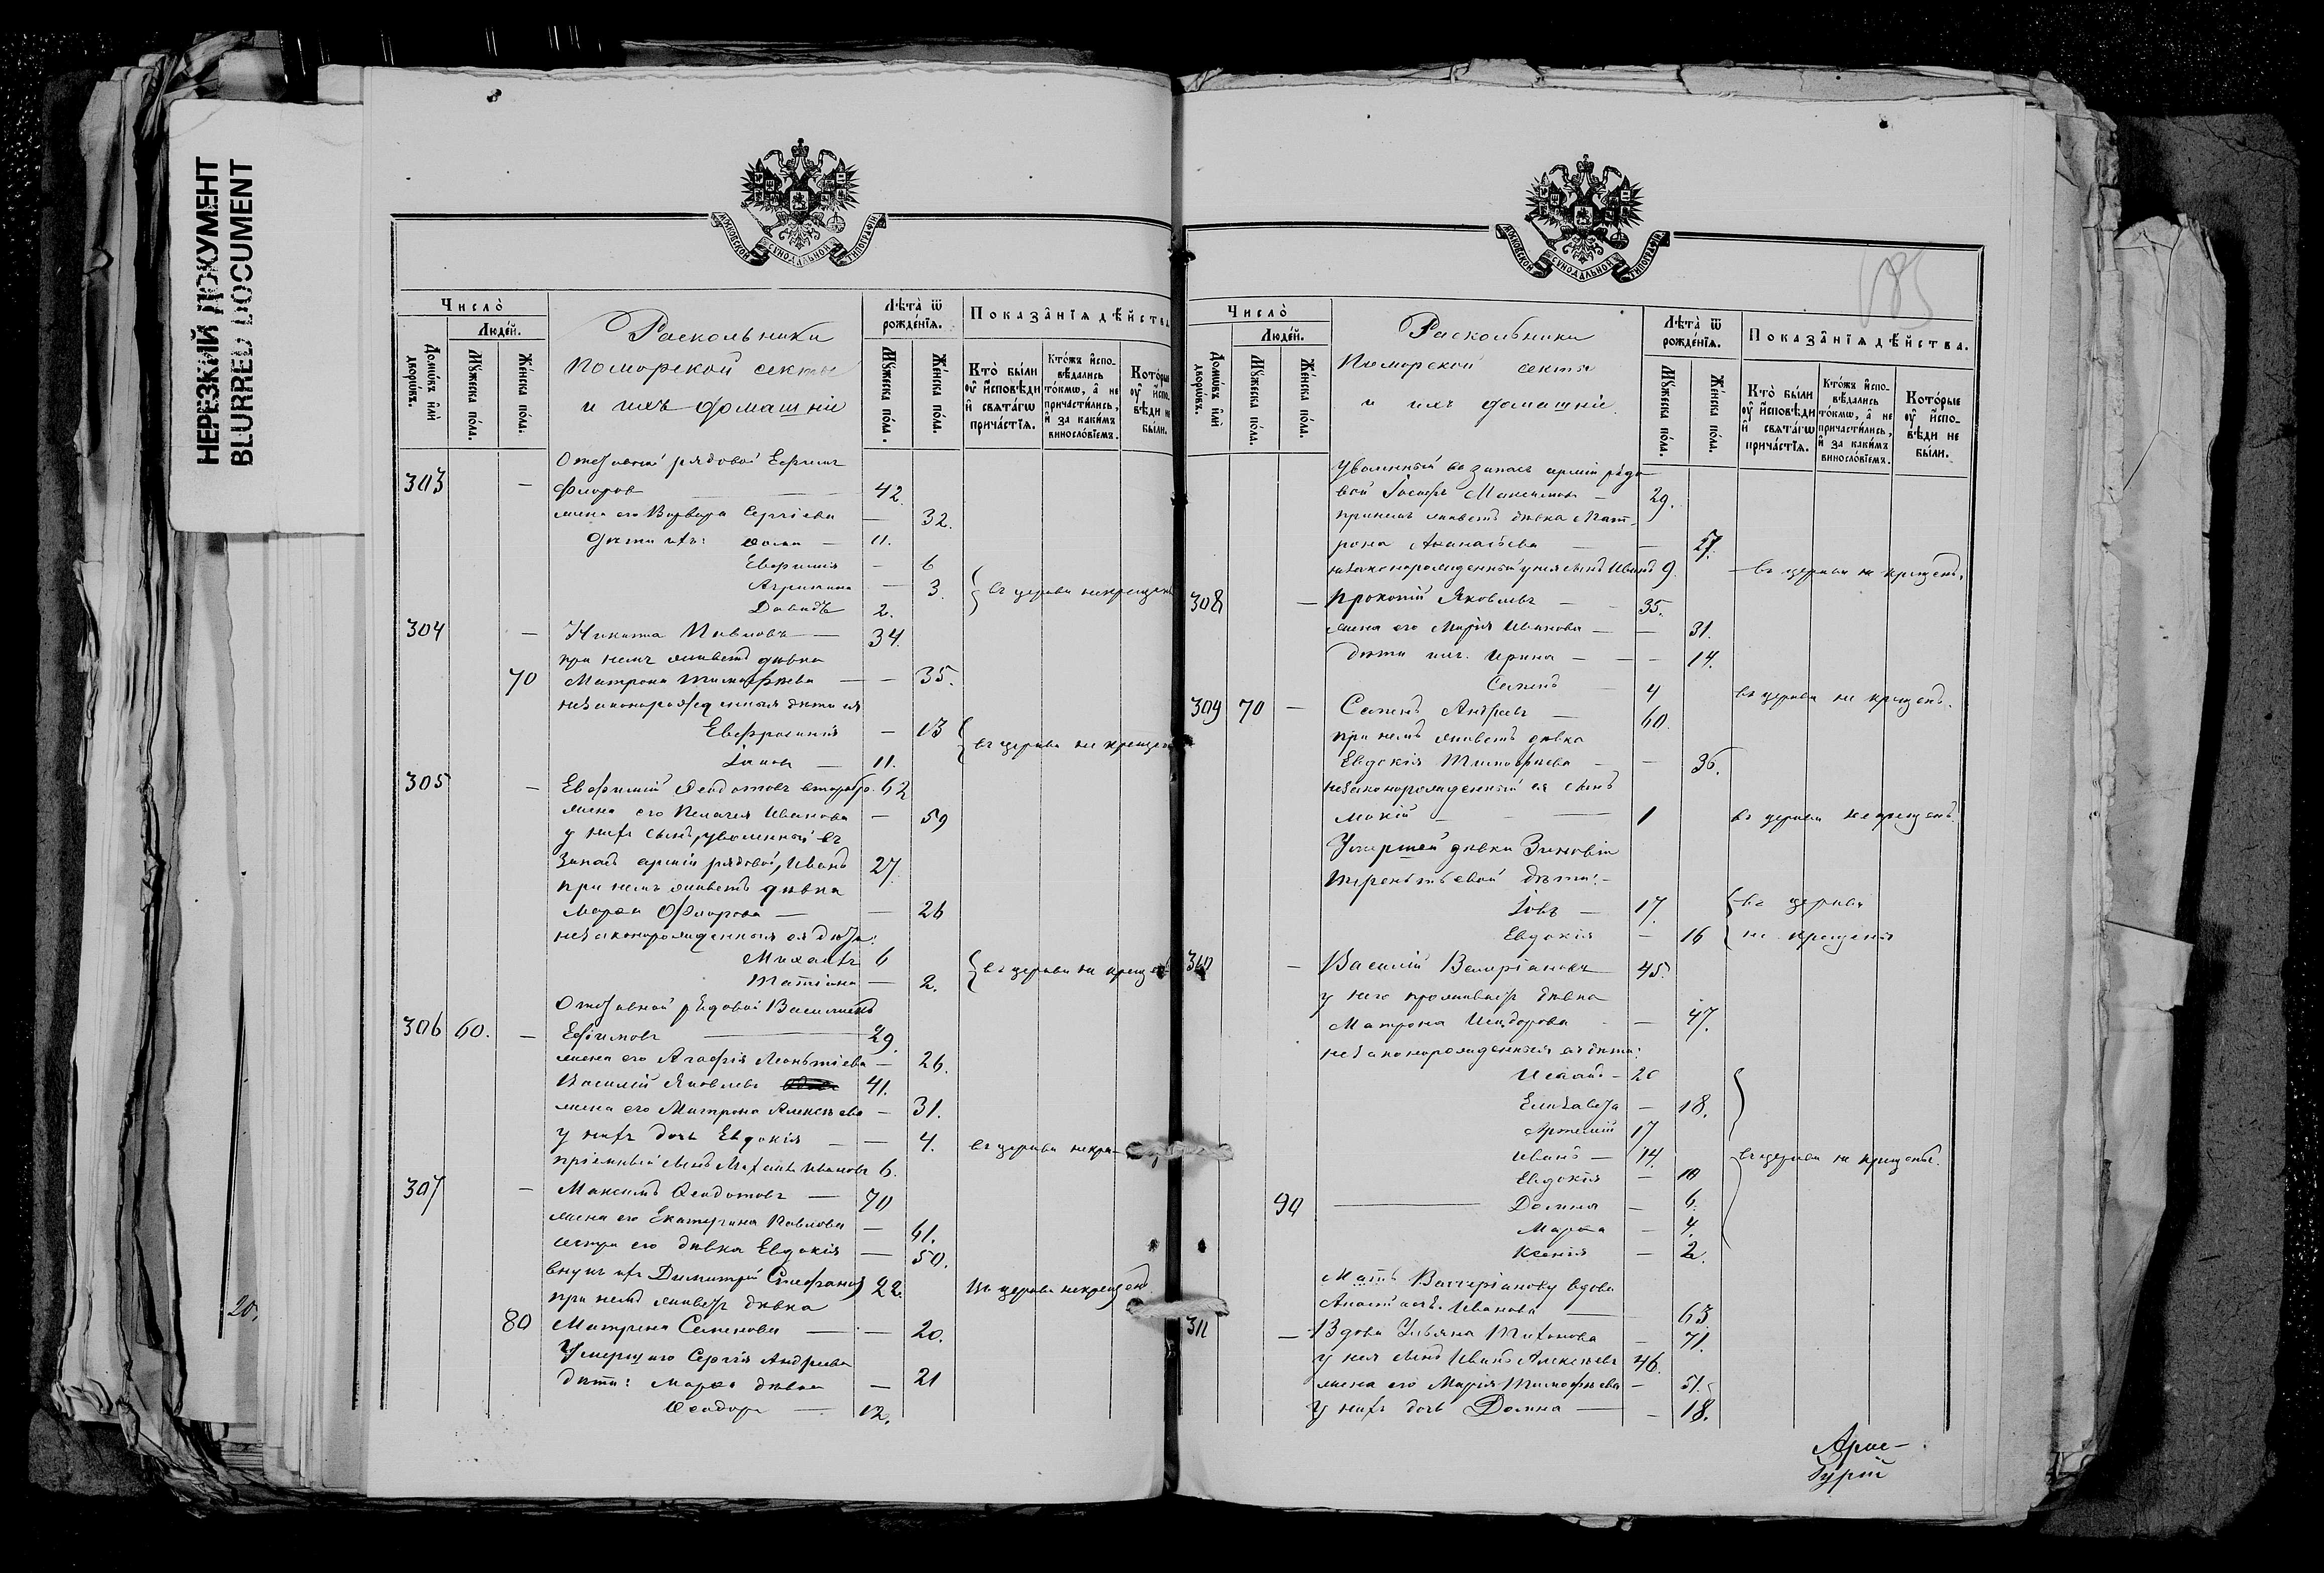 НЕРЕЗКИЙ ДОКУМЕНТ
BLURRED DOCUMENT
20.
МОСКОВСКОЙ СѴНОДАЛЬНОЙ ТИПОГРАФІИ
Число̀
Людей.
Домѡвъ и҆лѝ дворѡвъ.
Мꙋжеска по́ла.
Же́нска по́ла.
Раскольники
поморской секты
и ихъ домашніе
Лѣта̀ ѿ рожде́нїѧ.
Мꙋжеска по́ла.
Же́нска по́ла.
Показа̂нїѧ дѣ́йства
Кто̀ бы́ли ᲂу҆ и҆сповѣди и҆ свѧта́гѡ прича́стїѧ.
Кто́жъ и҆спо- вѣ́дались то́кмѡ, а҆ не причасти́лись, и҆ за каки́мъ винословїемъ.
Кото́рые ᲂу҆ и҆спо- вѣ́ди не бы́ли.
Отставной рядовой Ефимъ
303 — Флоровъ — 42.
жена его Варвара Сергіева — 32.
Дѣти ихъ: Ѳома — 11.
Евфимія — 6
Агрипина — 3. въ церкви не крещены
Давидъ 2.
304 — Никита Павловъ — 34.
при немъ живетъ дѣвка
70 Матрона Тимофѣева — 35.
незаконорожденныя дѣти ея
Евфросинія — 13
въ церкви не крещены
Іаковъ — 11.
305 — Евфимій Ѳеодотовъ 62
жена его Пелагея Иванова — 59
у нихъ сынъ, уволенный въ
запасъ арміи рядовой, Иванъ 27.
при немъ живетъ дѣвка
Марѳа Флорова — 26
незаконорожденныя ея дѣти:
Михаилъ 6
Татіана — 2. въ церкви не крещены
Отставной рядовой Василій
306 60. — Ефимовъ 29.
жена его Агафія Леонтіева — 26.
Василій Яковлевъ 41.
жена его Матрона Алексѣева — 31.
у нихъ дочь Евдокія — 4. въ церкви некре-
пріемный сынъ Ивановъ 6.
307 — Максимъ Ѳеодотовъ — 70
жена его Екатерина Павлова — 61.
сестра его дѣвка Евдокія — 50.
внукъ ихъ Димитрій Стефановъ 22. въ церкви некрещенъ.
при немъ живетъ дѣвка
80 Матрена Семенова — 20.
Умершаго Сергія Андреева
дѣти: Марѳа дѣвка — 21
Ѳеодоръ — 12.
МОСКОВСКОЙ СѴНОДАЛЬНОЙ ТИПОГРАФІИ
185
Число̀
Людей.
Домѡвъ и҆лѝ дворѡвъ.
Мꙋжеска по́ла.
Же́нска по́ла.
Раскольники
поморской секты
и ихъ домашніе.
Лѣта̀ ѿ рожде́нїѧ.
Мꙋжеска по́ла.
Же́нска по́ла.
Показа̂нїѧ дѣ́йства.
Кто̀ бы́ли ᲂу҆ и҆сповѣди и҆ свѧта́гѡ прича́стїѧ.
Кто́жъ и҆спо- вѣ́дались то́кмѡ, а҆ не причасти́лись, и҆ за каки́мъ винословїемъ.
Кото́рые ᲂу҆ и҆спо- вѣ́ди не бы́ли.
Уволенный въ запасъ арміи рядо-
вой Іосифъ Максимовъ — 29.
при немъ живетъ дѣвка Мат-
рона Ананьева — 27.
незаконорожденный у нея сынъ Иванъ 9. въ церкви не крещенъ.
308 — Прокопій Яковлевъ — 35.
жена его Марія Иванова — 31.
дѣти ихъ. Ирина — 14.
Семенъ 4 въ церкви не крещенъ.
309 70 — Семенъ Андреевъ — 60.
при немъ живетъ дѣвка
Евдокія Тимофеева — 36.
незаконорожденный ея сынъ
Мокій — 1 въ церкви не крещенъ.
Умершей дѣвки Зиновіи
Терентьевой дѣти:
Іовъ — 17. въ церкви
Евдокія — 16 не крещены
310 — Василій Валеріановъ 45.
у него проживаетъ дѣвка
Матрона Исидорова — 47.
незаконорожденныя ея дѣти:
Исаай — 20
Елизавета — 18.
Артемій 17
Иванъ — 14. въ церкви не крещены.
Евдокія — 10
90 Домна — 6.
Марѳа — 4.
Ксенія — 2.
Мать Валеріанову вдова
Иванова 63.
311 — Вдова Ульяна Тихонова — 71.
у нея сынъ Иванъ Алексѣевъ 46.
жена его Марія Тимофѣева — 51.
у нихъ дочь Домна — 18.